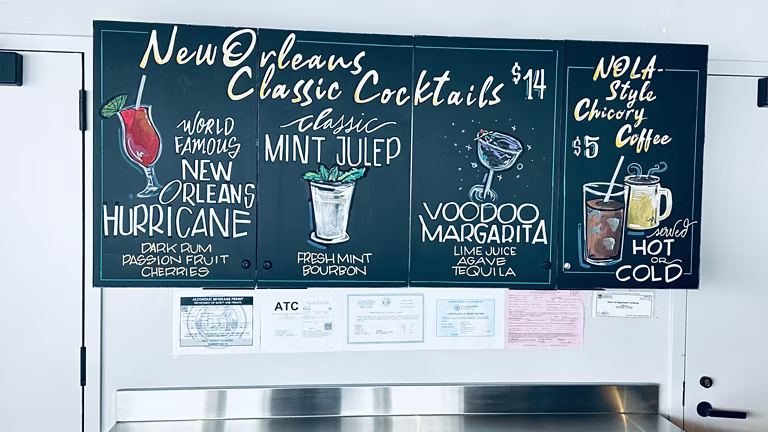 New Orleans
Classic Cocktails $14
WORLD
FAMOUS
NEW
ORLEANS
HURRICANE
DARK RUM
PASSION FRUIT
CHERRIES
classic
MINT JULEP
FRESH MINT
BOURBON
VOODOO
MARGARITA
LIME JUICE
AGAVE
TEQUILA
NOLA-
Style
Chicory
Coffee
$5
served
HOT
OR
COLD
ALCOHOLIC BEVERAGE PERMIT
ATC